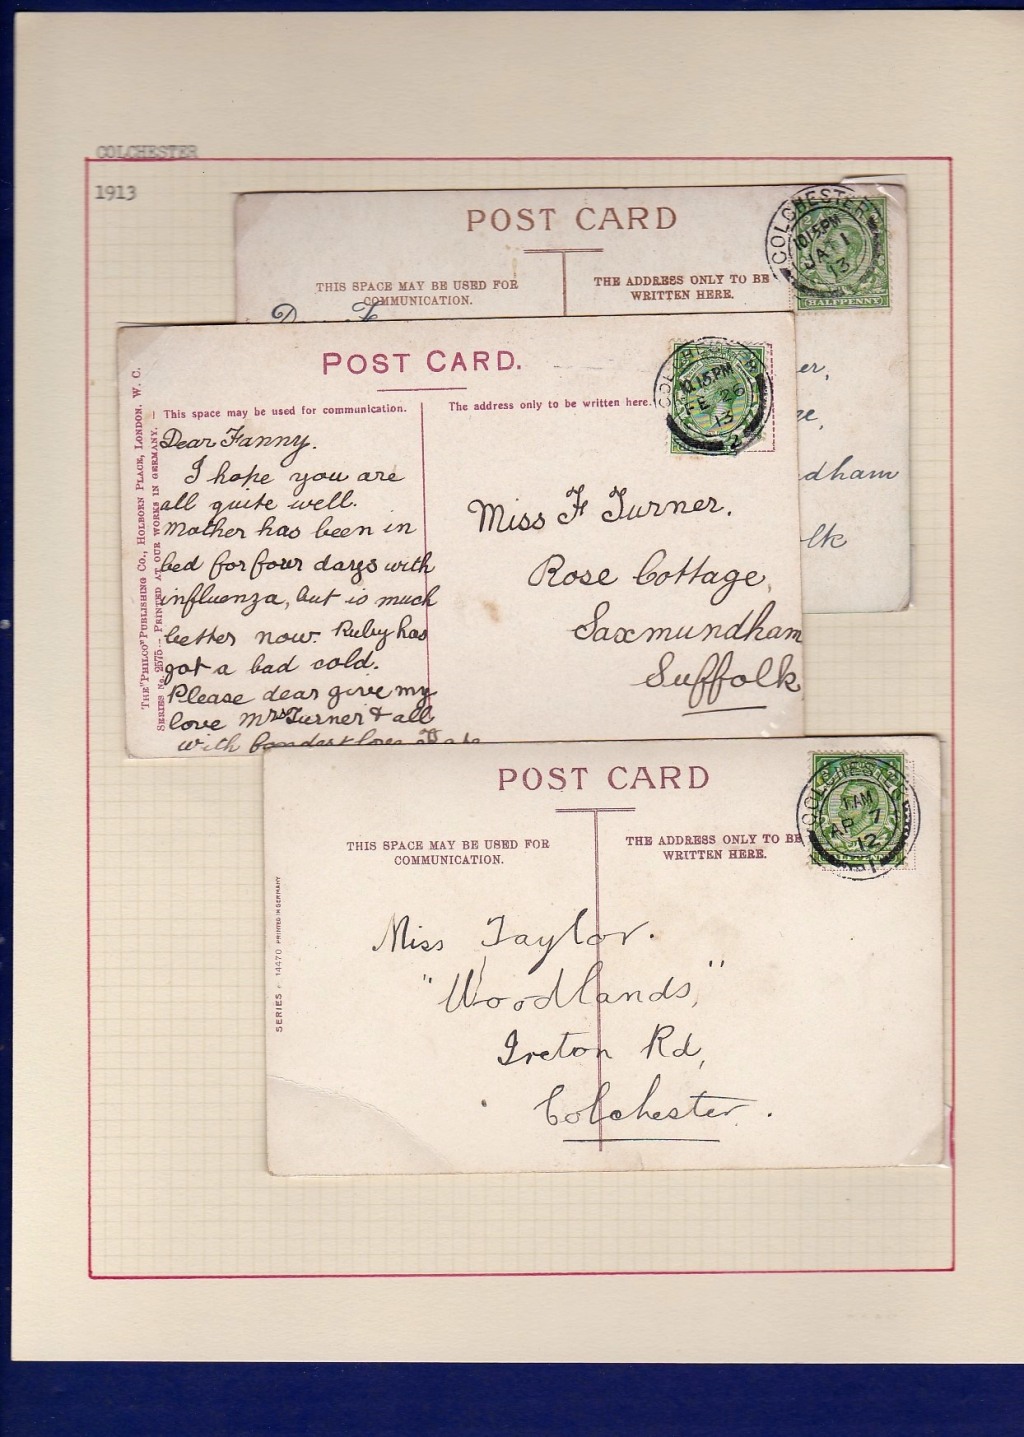 COLCHESTER
1913
POST CARD
THIS SPACE MAY BE USED FOR
COMMUNICATION.
THE ADDRESS ONLY TO BE
WRITTEN HERE.
COLCHESTER
10.15PM
JA 1
13
HALFPENNY
er,
dham
olk
POST CARD.
THE "PHILCO" PUBLISHING CO., HOLBORN PLACE, LONDON. W. C.
SERIES No. 2575 — PRINTED AT OUR WORKS IN GERMANY. —
This space may be used for communication.
The address only to be written here.
COLCHESTER
10.15PM
FE 26
13
2
Dear Fanny.
I hope you are
all quite well.
Mother has been in
bed for four days with
influenza, but is much
better now. Ruby has
got a bad cold.
Please dear give my
love Mrs Turner & all
with fondest love
Miss F Turner.
Rose Cottage,
Saxmundham
Suffolk
POST CARD
THIS SPACE MAY BE USED FOR
COMMUNICATION.
THE ADDRESS ONLY TO BE
WRITTEN HERE.
COLCHESTER
1 AM
AP 7
12
1
SERIES 14470 PRINTED IN GERMANY
Miss Taylor.
"Woodlands,"
Ireton Rd,
Colchester.